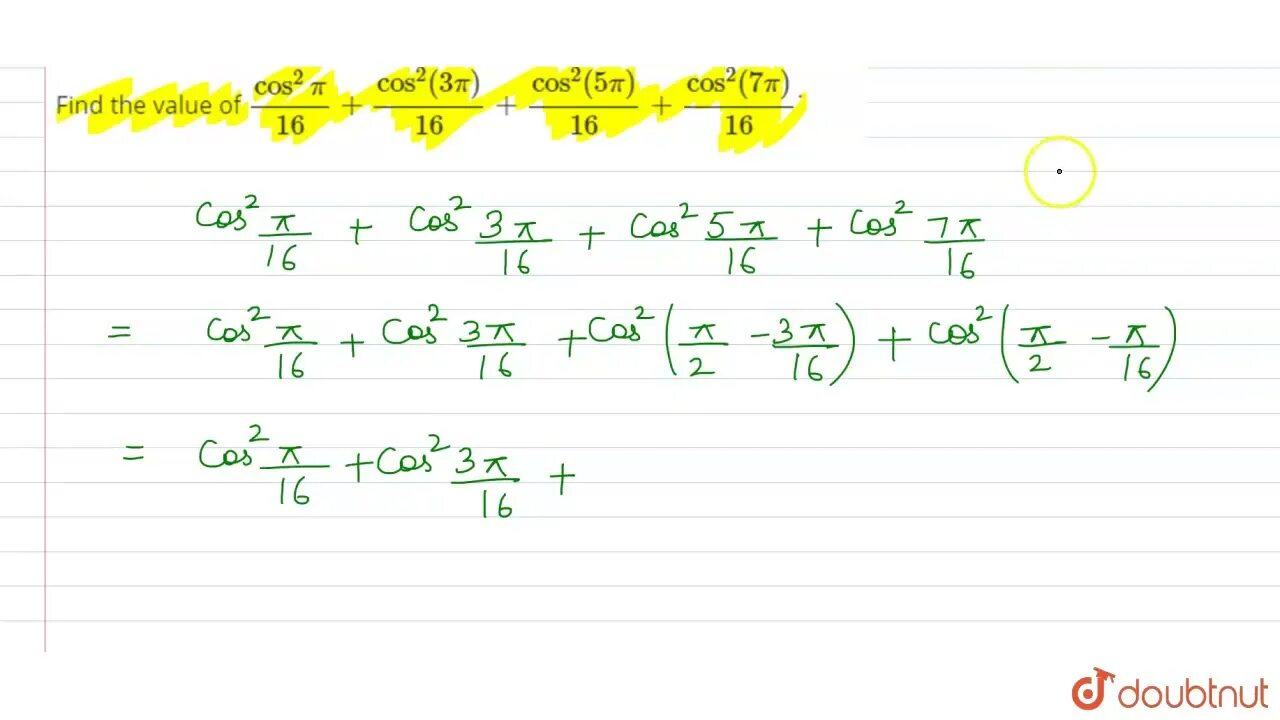 Find the value of cos² π/16 + cos²(3π)/16 + cos²(5π)/16 + cos²(7π)/16.
Cos² π/16 + Cos² 3π/16 + Cos² 5π/16 + Cos² 7π/16
= Cos² π/16 + Cos² 3π/16 + Cos² (π/2 - 3π/16) + Cos² (π/2 - π/16)
= Cos² π/16 + Cos² 3π/16 +
doubtnut